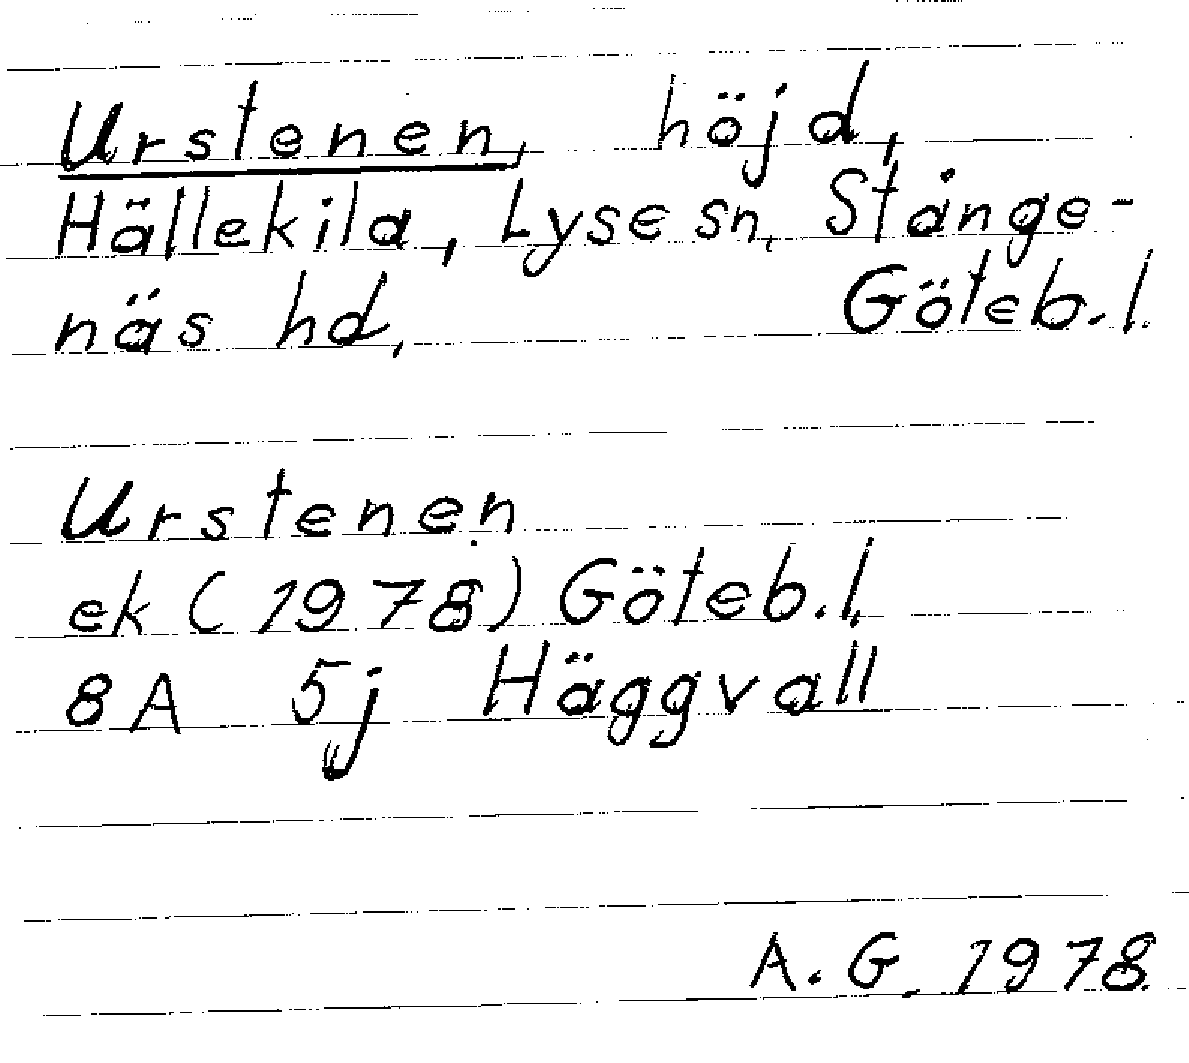 Urstenen, höjd,
Hällekila, Lyse sn, Stånge-
näs hd, Göteb. l.
Urstenen
ek (1978) Göteb. l.
8A 5j Häggvall
A. G. 1978